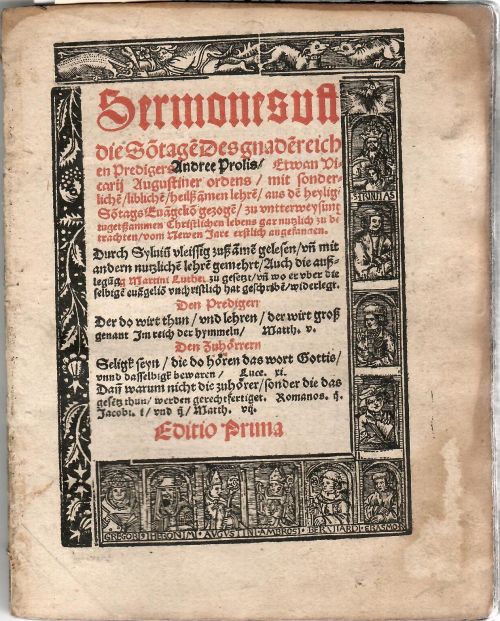 Sermones uff
die Sōtagē Des gnadēreich
en Predigers Andree Prolis / Etwan Vi
carij Augustiner ordens / mit sonder
lichē / liblichē / heilsāmen lehrē / aus dē heylig
Sōtags Euāgeliō gezogē / zu vntterweysung
tugetsammen Christlichen lebens gar nutzlich zu be
trachten / vom Newen Jare erstlich angefangen.
Durch Syluiū vleissig zusāmē gelesen / vn̄ mit
andern nutzlichē lehrē gemehrt / Auch die auß-
legūg Martini Luther zu gesetzt / vn̄ wo er vber die
selbigē euāgeliō vnchristlich hat geschribē / widerlegt.
Den Predigern
Der do wirt thun / vnd lehren / der wirt groß
genant Im reich der hymmeln / Matth. v.
Den Zuhörrern
Seligk seyn / die do hören das wort Gottis /
vnnd dasselbigk bewaren / Luce. xi.
Dan̄ warum nicht die zuhörer / sonder die das
gesetz thun / werden gerechtfertiget. Romanos. ij.
Jacobi. i / vnd ij / Matth. vij.
Editio Prima
GREGORI HIERONIM AUGUSTIN AMBROSI BERNARDI ERASMO